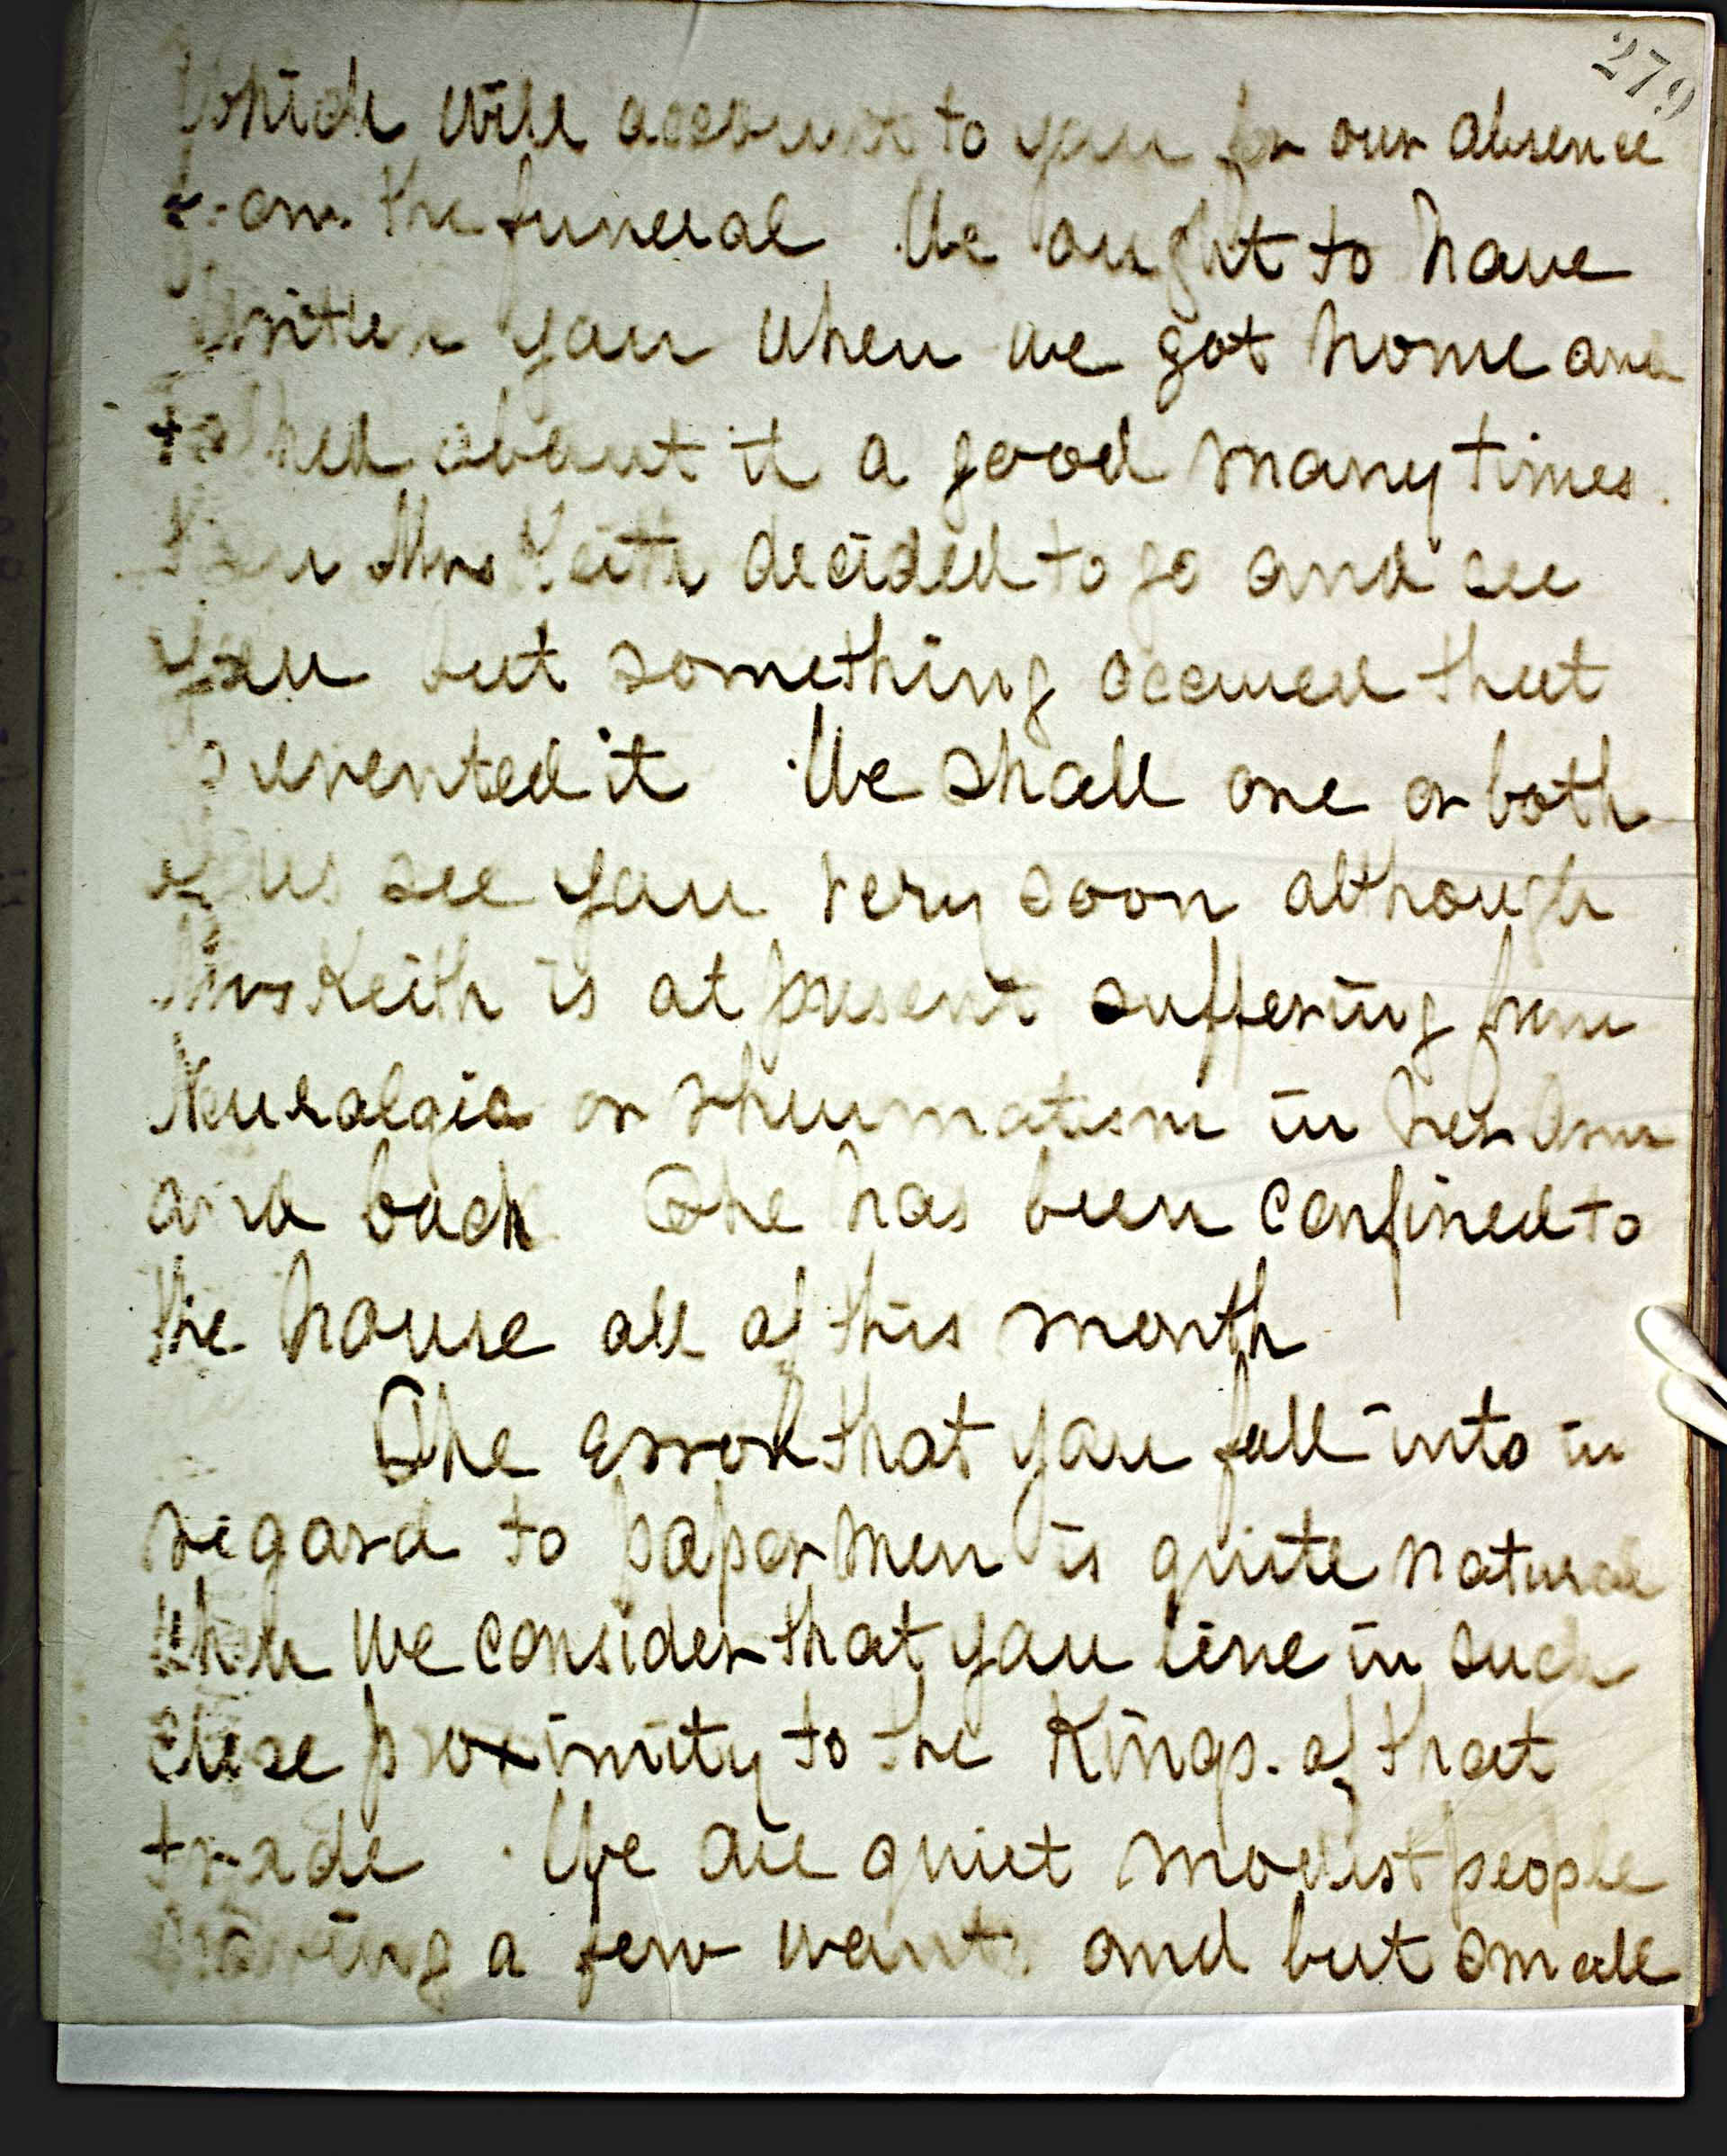 279
Which will account to you for our absence
from the funeral We ought to have
written you when we got home and
talked about it a good many times
Mrs Keith decided to go and see
you but something occured that
prevented it We shall one or both
of us see you very soon although
Mrs Keith is at present suffering from
Neuralgia or rheumatism in her Arm
and back She has been confined to
the house all of this month
The error that you fall into in
regard to paper men is quite natural
when we consider that you live in such
close proximity to the Kings. of that
trade. We are quiet modest people
having a few wants and but small